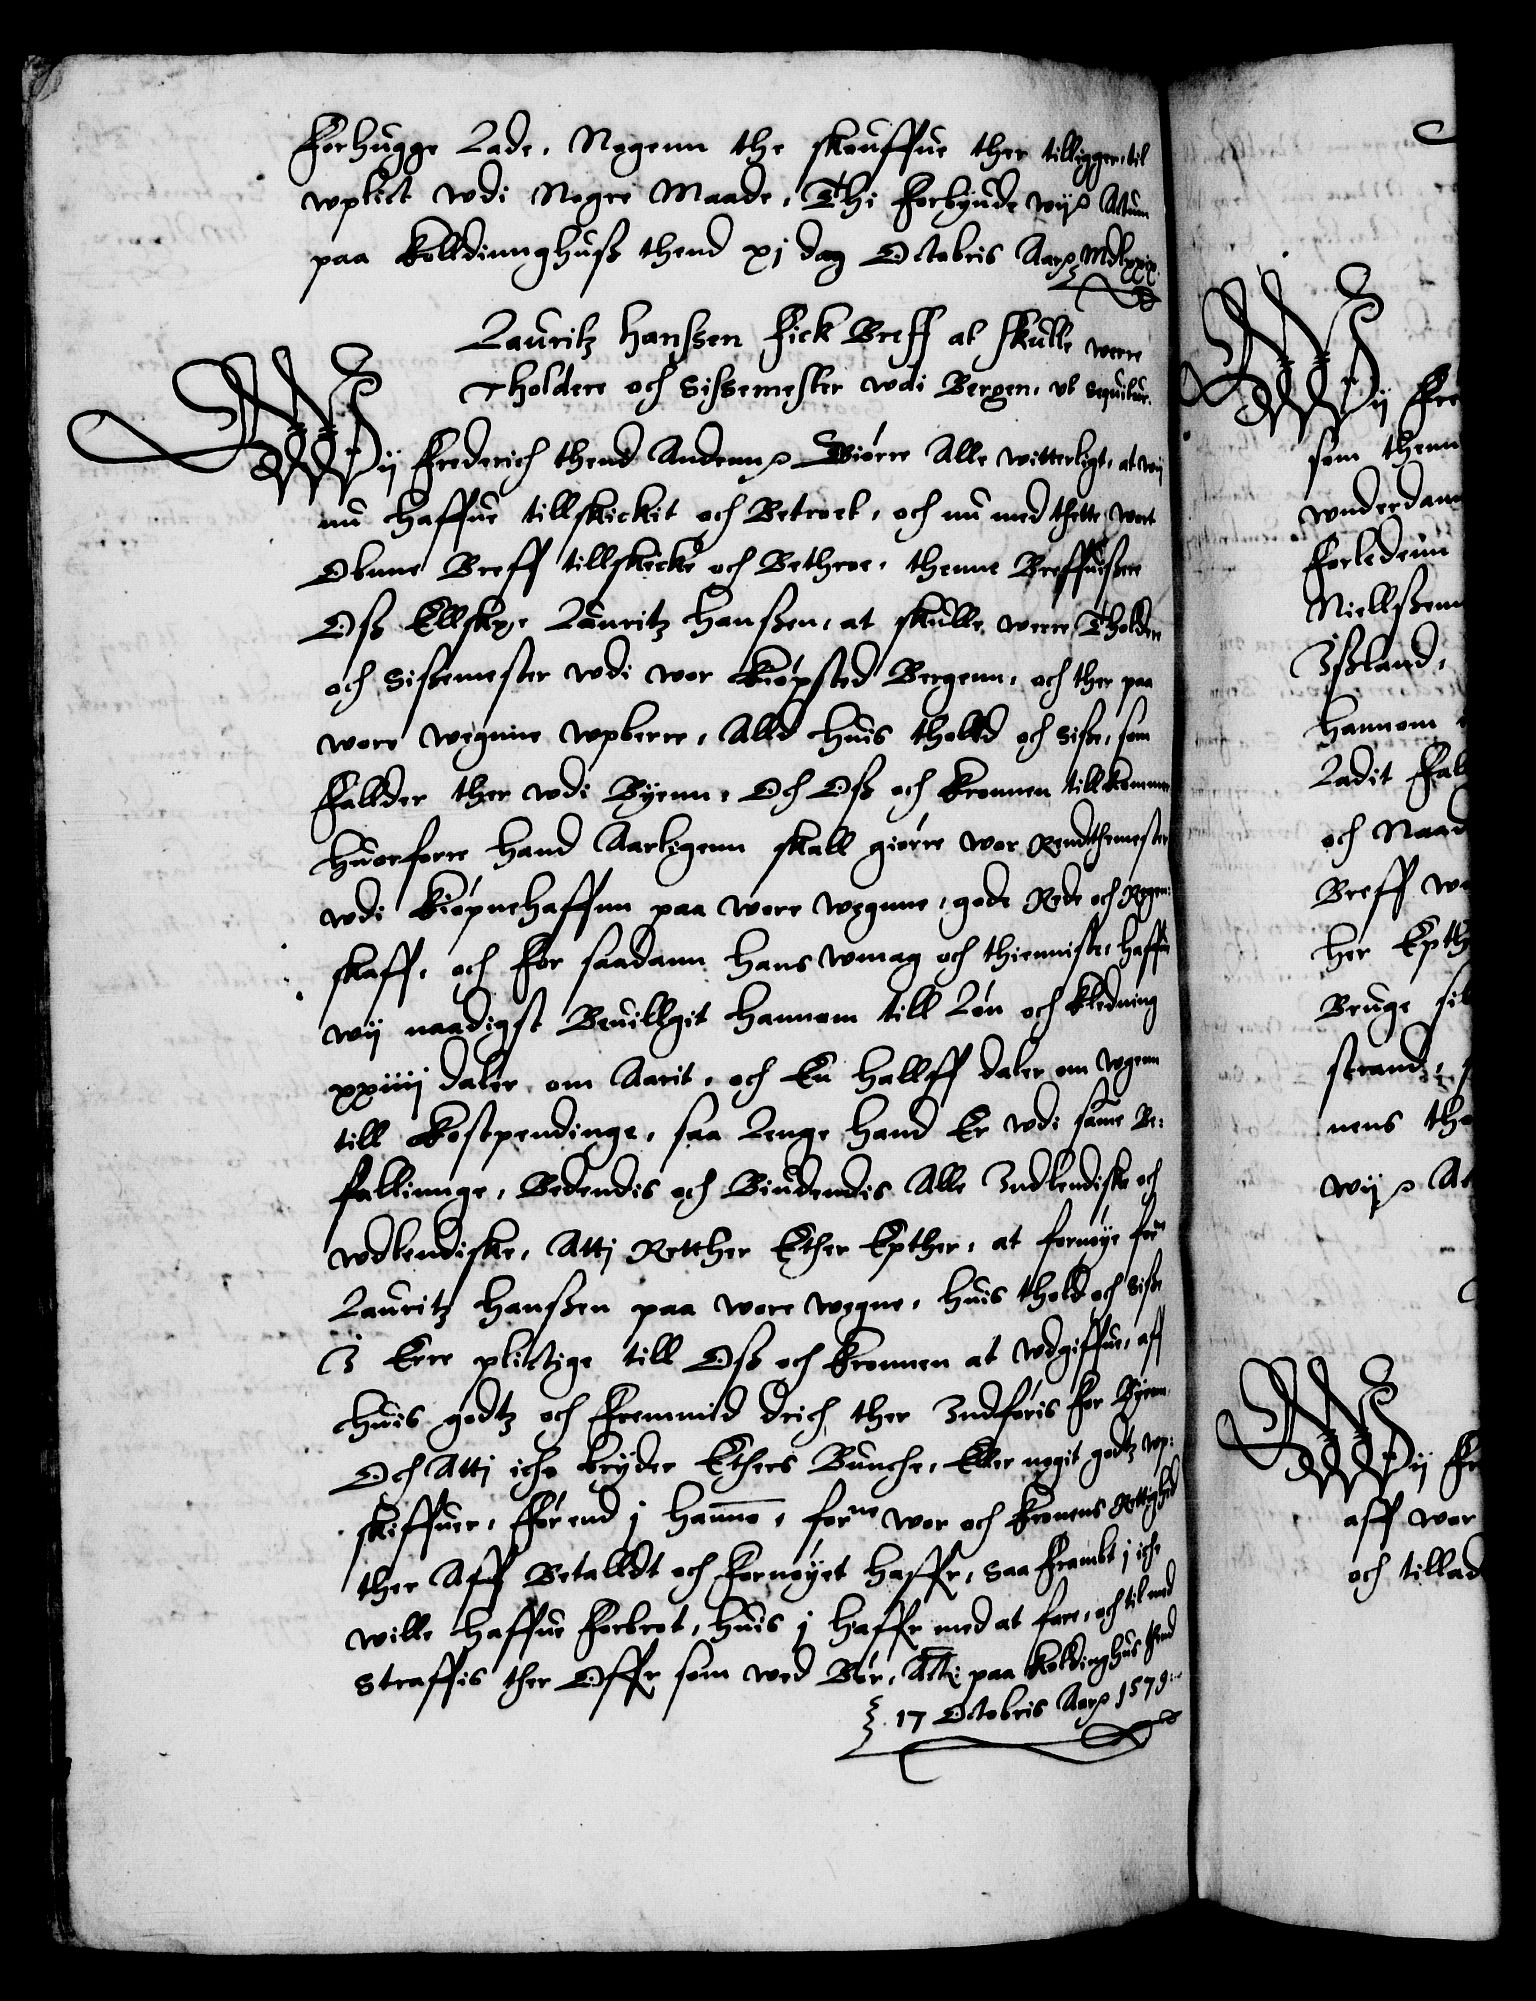 Forhugge Lade, Nogenn the skouffue ther tilligger, til
wplict wdi Nogre Maade, Thi forbyude wij Actum
paa Kolldinnghuß thend xj dag Octobris Aar Mdlxxix.
Lauritz Hanssen Fick Breff at skulle werre
Tholdere och Sissemester wdi Bergen, vt sequitur.
Wij Frederich thend Andenn Giørre Alle witterligt, at wij
nu haffue tillskickit och Betroet, och nu med thette wort
Obnne Breff tillskicke och Bethroe, thenne Breffuißere
Oß Ellske. Lauritz Hanßen, at skulle werre Tholder
och Sißemester wdi wor Kiøpsted Bergenn, och ther paa
wore wegnne wpberre, Alld huis tholld och Siße, som
Fallder ther wdi Byenn, Och Oß och Kronnen tillkomme
huorforre hand Aarligenn skall giørre wor Rendthemester
wdi Kiøpnehaffnn paa wore wegnne, gode Rede och Regen:
skaff, och For saadann hans wmag och thienniste, haffue
wij naadigst Beuillgit hannom till Løn och Kledning
xxiiij daler om Aarit, och En hallff daler om wgenn
till Kostpendinge, saa Lenge hand Er wdi same Be:
fallinnge, Bedendis och Biudendis Alle Indlendiske och
wdlendiske, Atti Retther Ether Epther, at fornøye forne
Lauritz Hanßen paa wore wegne, huis thold och Siße
I Erre plictige till Oß och Kronnen at wdgiffue, aff
huis godtz och Fremmid drick ther Indføris for Byenn
Och Atti icke bryder Ethers Bunche, Eller nogit godtz wp:
skiffuer, Førend j hanno, forne wor och Kronens Rettighed
ther Aff Betalldt och Fornøyet haffr, Saa Frambt j icke
wille haffue Forbrot, huis j haffr med at fare, och til med
straffis ther Offr som wed Bør, Actu paa Koldinghus thend
17 Octobris Aar 1579.
Wij Fre
som thenn
wnderdann
Forledenn
Niellßenn
Ißland,
hannom
Ladit Fal
och Naad
Breff w
her Epth
Bruge sil
strand,
nens tho
wij At
Wij Fr
aff wor
och tillad